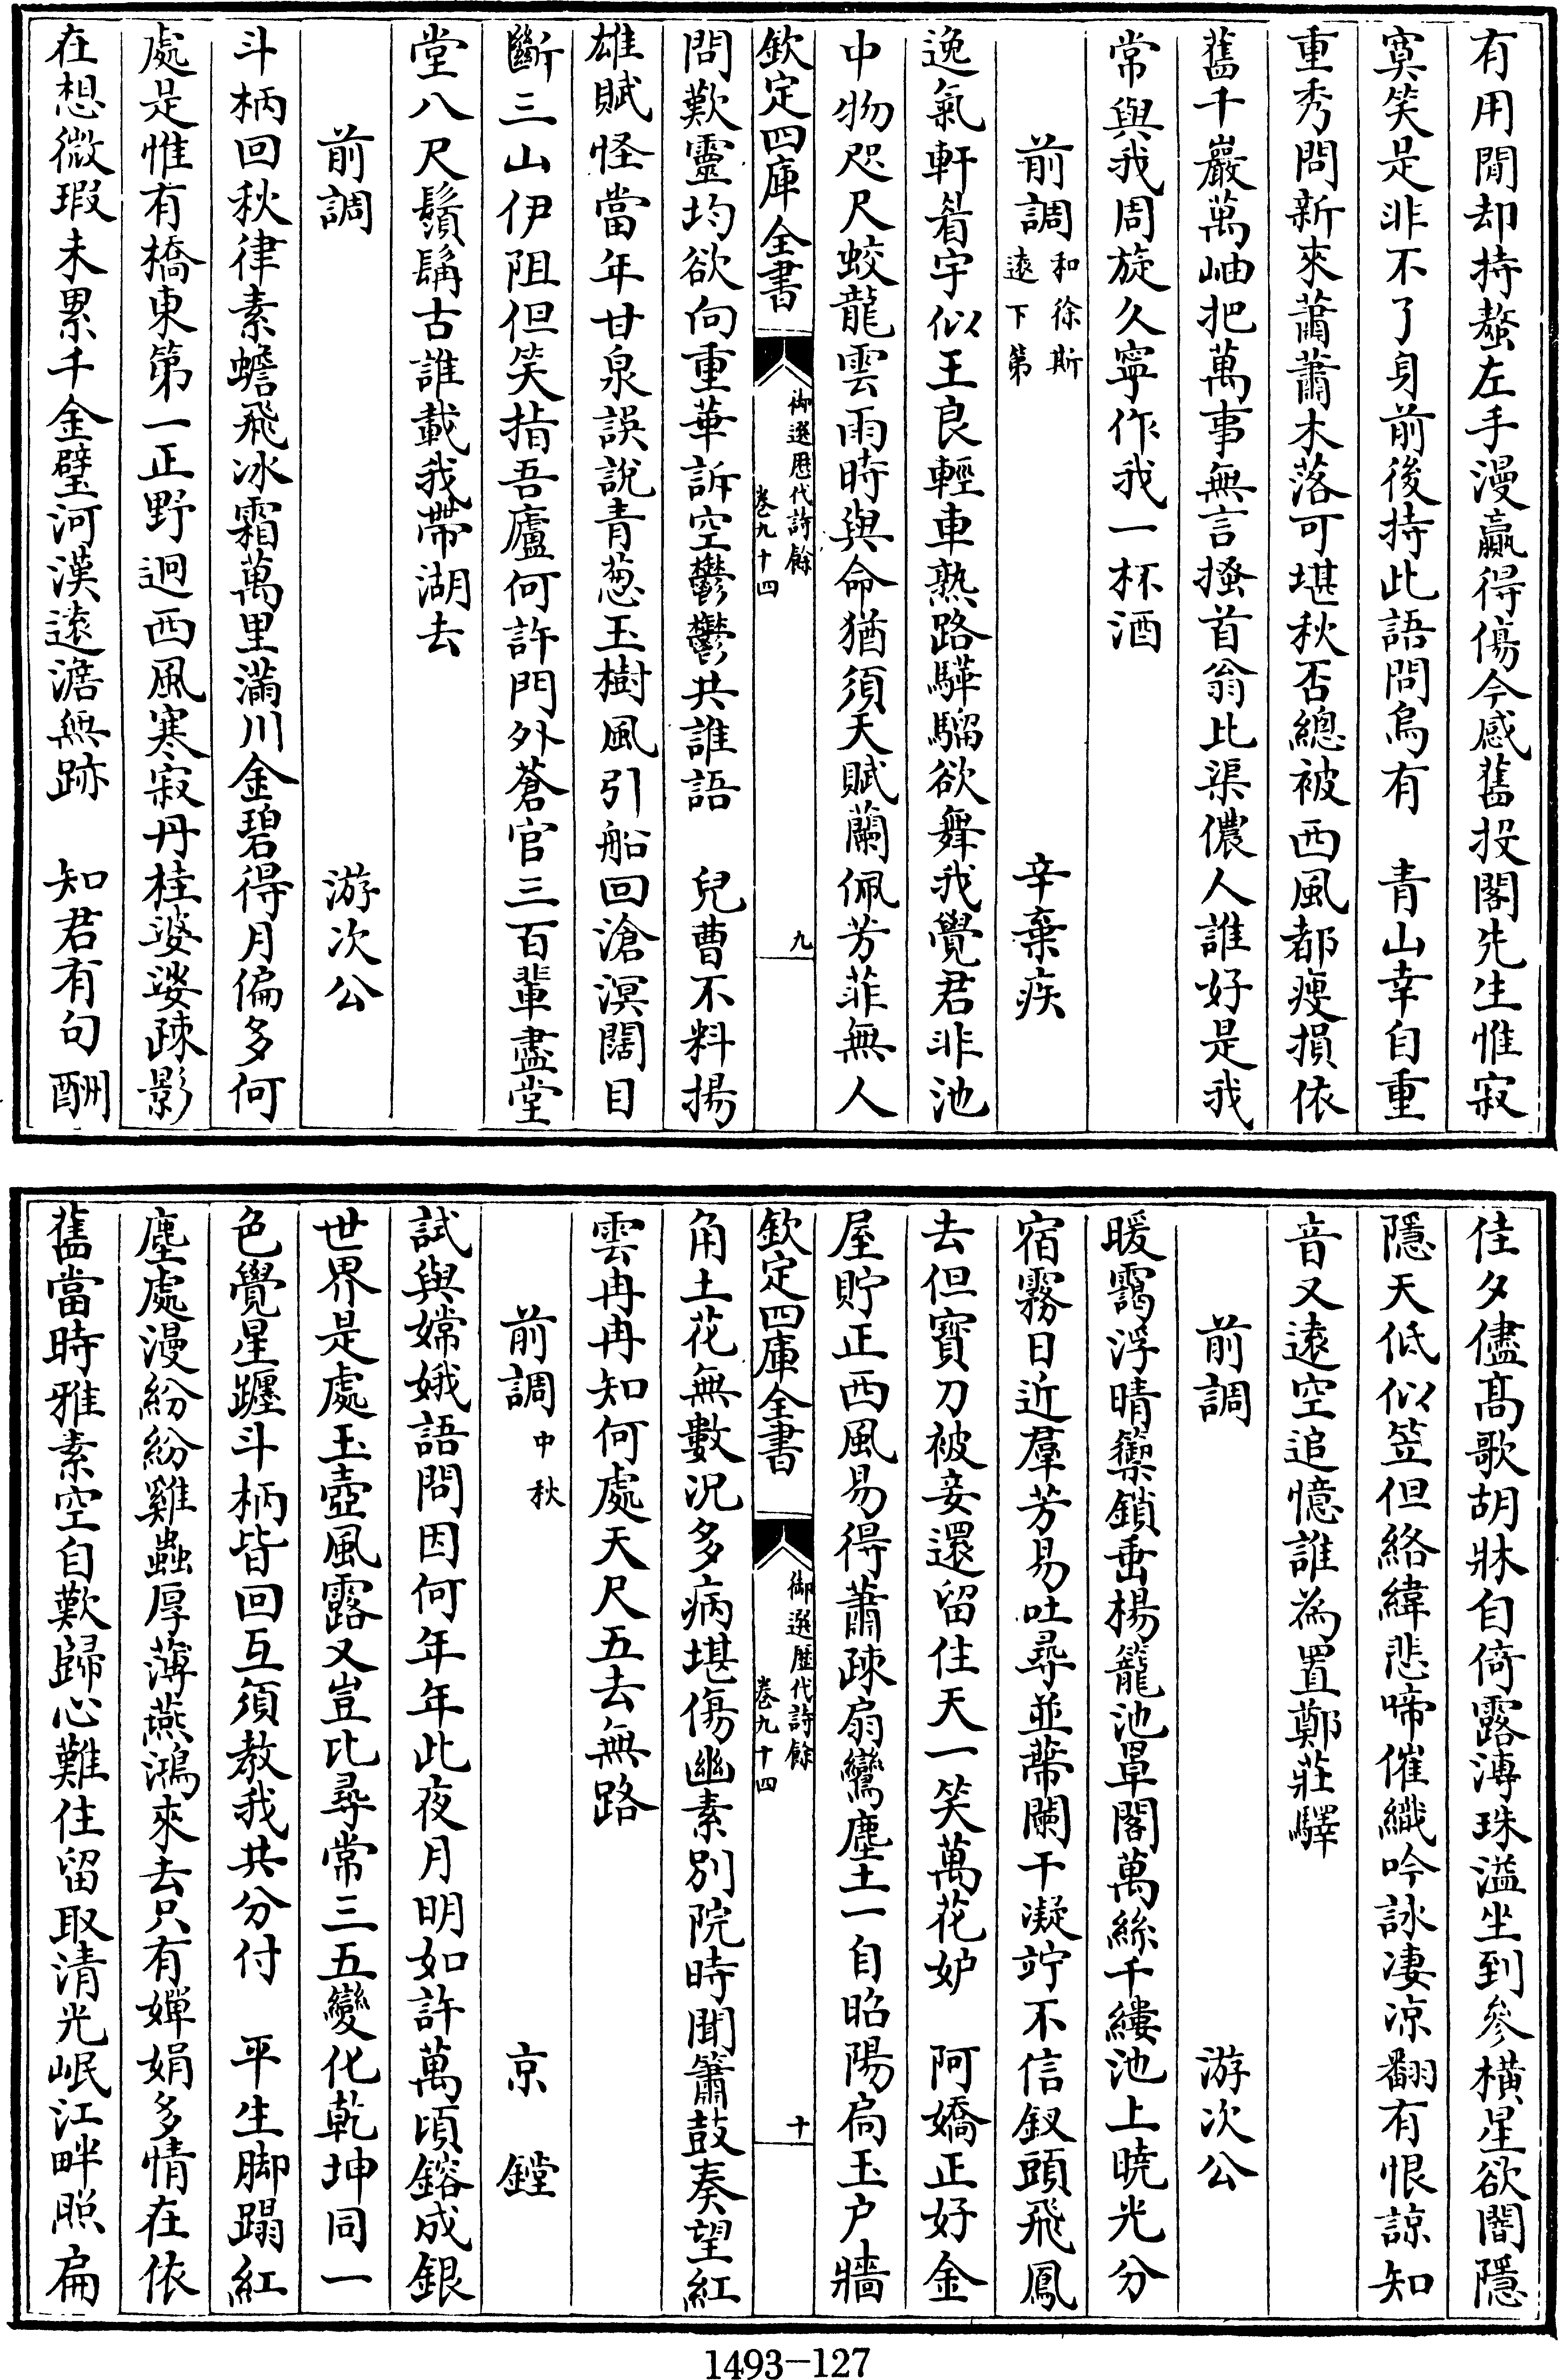 有用閒却持螯左手漫贏得傷今感舊投閣先生惟寂
寞笑是非不了身前後持此語問烏有　青山幸自重
重秀問新來蕭蕭木落可堪秋否總被西風都瘦損依
舊千巖萬岫把萬事無言搔首翁比渠儂人誰好是我
常與我周旋久寧作我一杯酒
前調和徐斯遠下第　辛棄疾
逸氣軒眉宇似王良輕車熟路驊騮欲舞我覺君非池
中物咫尺蛟龍雲雨時與命猶須天賦蘭佩芳菲無人
欽定四庫全書　御選歷代詩餘卷九十四　九
問歎靈均欲向重華訴空鬱鬱共誰語　兒曹不料揚
雄賦怪當年甘泉誤說青葱玉樹風引船回滄溟闊目
斷三山伊阻但笑指吾廬何許門外蒼官三百輩盡堂
堂八尺鬚髯古誰載我帶湖去
前調　游次公
斗柄回秋律素蟾飛冰霜萬里滿川金碧得月偏多何
處是惟有橋東第一正野迥西風寒寂丹桂婆娑疎影
在想微瑕未累千金璧河漢遠澹無跡　知君有句酬
佳夕儘髙歌胡牀自倚露漙珠溢坐到參橫星欲闇隱
隱天低似笠但絡緯悲啼催織吟詠凄凉翻有恨諒知
音又遠空追憶誰為置鄭莊驛
前調　游次公
暖靄浮晴籞鎖垂楊籠池罩閣萬絲千縷池上曉光分
宿霧日近羣芳易吐尋並蒂闌干凝竚不信釵頭飛鳳
去但寶刀被妾還留住天一笑萬花妒　阿嬌正好金
屋貯正西風易得蕭疎扇鸞塵土一自昭陽扃玉户牆
欽定四庫全書　御選歷代詩餘卷九十四　十
角土花無數況多病堪傷幽素別院時聞簫鼓奏望紅
雲冉冉知何處天尺五去無路
前調中秋　京　鏜
試與嫦娥語問因何年年此夜月明如許萬頃鎔成銀
世界是處玉壺風露又豈比尋常三五變化乾坤同一
色覺星躔斗柄皆回互須教我共分付　平生脚蹋紅
塵處漫紛紛雞蟲厚薄燕鴻來去只有嬋娟多情在依
舊當時雅素空自歎歸心難住留取清光岷江畔照扁
1493—127